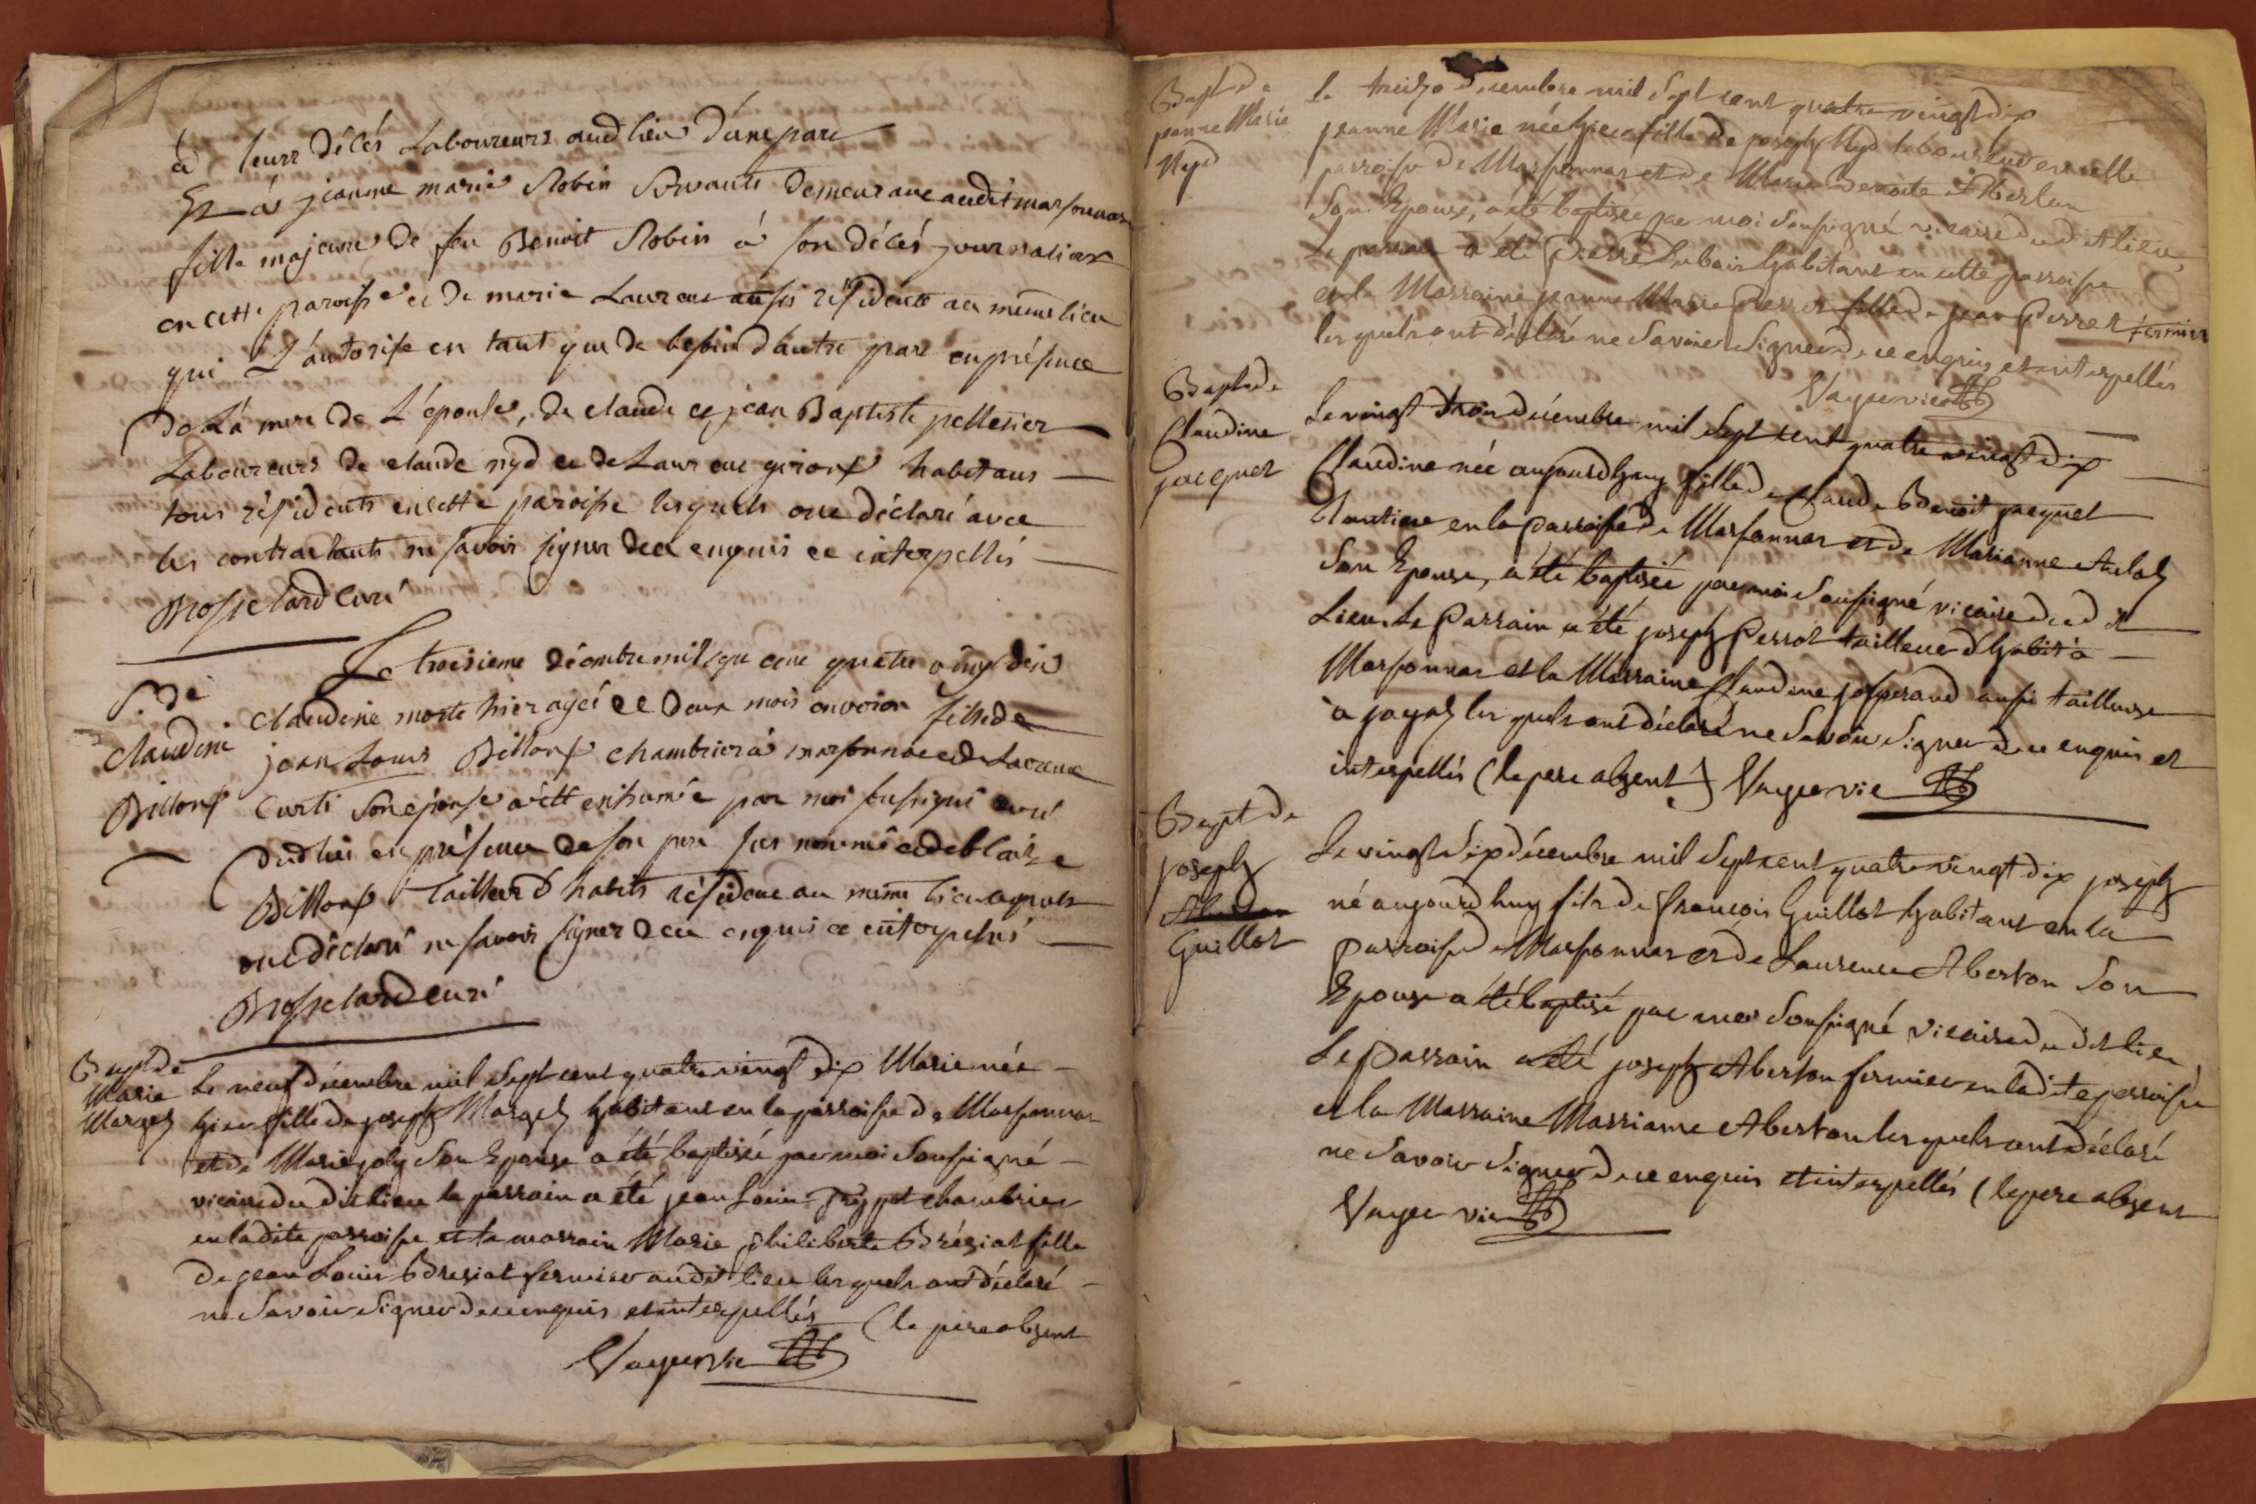 à leurs décès Laboureurs audlieu d'une part
Et à jeanne marie Robin servante demeurante audit marsonnas
fille majeure de feu Benoit Robin à son décés journalier
en cette paroisse et de marie Laurent aussi résidente au même lieu
qui L'autorise en tant que de besoin d'autre part en présence
de La mere de L'épouse, de claude et jean Baptiste pelletier
Laboureurs de claude nyd et de Laurent girouf habitans
tous résidents en cette paroisse lesquels ont déclaré avec
les contractants ne savoir signer de ce enquis et interpellés
Brosselard curé
Le troisieme décembre mil sept cent quatre vingt dix
S. de
claudine
Billouf
claudine morte hier agée de deux mois environ fille de
jean Louis Billouf chambrier à marsonnas et de Laurence
Curti son épouse a été enhumée par moi soussigné curé
dudlieu en présence de son pere sus nommé et de blaise
Billouf tailleur d'habits résident au même lieu
ont déclaré ne savoir signer de ce enquis et interpellés
Brosselard curé
Bapt de
Marie
Margel
Le neuf décembre mil sept cent quatre vingt dix Marie née
hier fille de joseph Margel habitant en la parroisse de Marsonnas
et de Marie joly son Epouse a été baptisée par moi soussigné
vicaire du dit lieu le parrain a été jean Louis chambrier
en ladite parroisse et la marrain Marie philiberte Bréziat fille
de jean Louis Breziat fermier audit lieu lesquels ont déclaré
ne savoir signer de ce enquis et interpellés (le pere absent
Vayer vic
Bapt de
jeanne Marie
Nyd
Le treize decembre mil sept cent quatre vingt dix
jeanne Marie née hier fille de joseph Nyd en cette
parroisse de Marsonnas et de Marie Benoite Aberlen
son Epouse, a été baptisée par moi soussigné vicaire dudit lieu,
Le parrain a été Pierre Dubois habitant en cette parroisse
et la Marraine jeanne Marie Perret fille de jean Perret fermier
lesquels ont déclaré ne savoir signer de ce enquis et interpellés
Vayer vic
Bapt de
Claudine
jacquet
Le vingt trois décembre mil sept cent quatre vingt dix
Claudine née aujourdhuy fille de Claude Benoit jacquet
en la parroisse de Marsonnas et de Marianne
son Epouse, a été baptisée par moi soussigné vicaire dudit
Lieu. Le Parrain a été joseph Perrot tailleur d'habit à
Marsonnas et la Marraine Claudine josserand aussi tailleuse
à jayat lesquels ont déclaré ne savoir signer de ce enquis et
interpellés (le pere absent) Vayer vic
Bapt de
joseph
Guillot
Le vingt six décembre mil sept cent quatre vingt dix joseph
né aujourdhuy fils de françois Guillot habitant en la
parroisse de Marsonnas et de Laurence Aberton son
Epouse a été baptisé par moi soussigné vicaire du dit lieu
Le Parrain a été joseph Aberton fermier en ladite parroisse
et la Marraine Marrianne Aberton lesquels ont déclaré
ne savoir signer de ce enquis et interpellés (le pere absent
Vayer vic